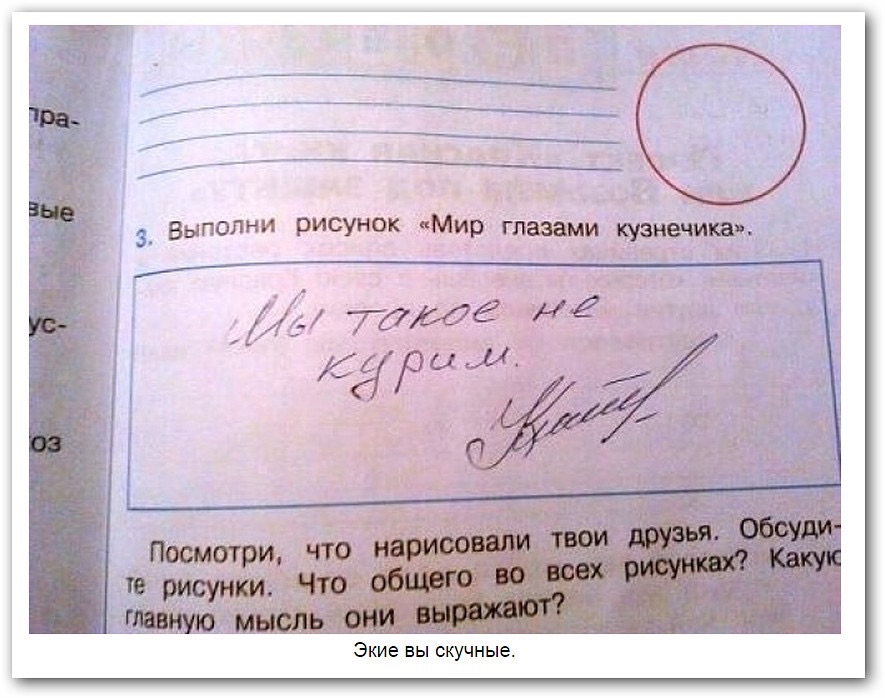 пра-
вые
ус-
оз
3. Выполни рисунок «Мир глазами кузнечика».
Мы такое не
курим.
Посмотри, что нарисовали твои друзья. Обсуди-
те рисунки. Что общего во всех рисунках? Какую
главную мысль они выражают?
Экие вы скучные.